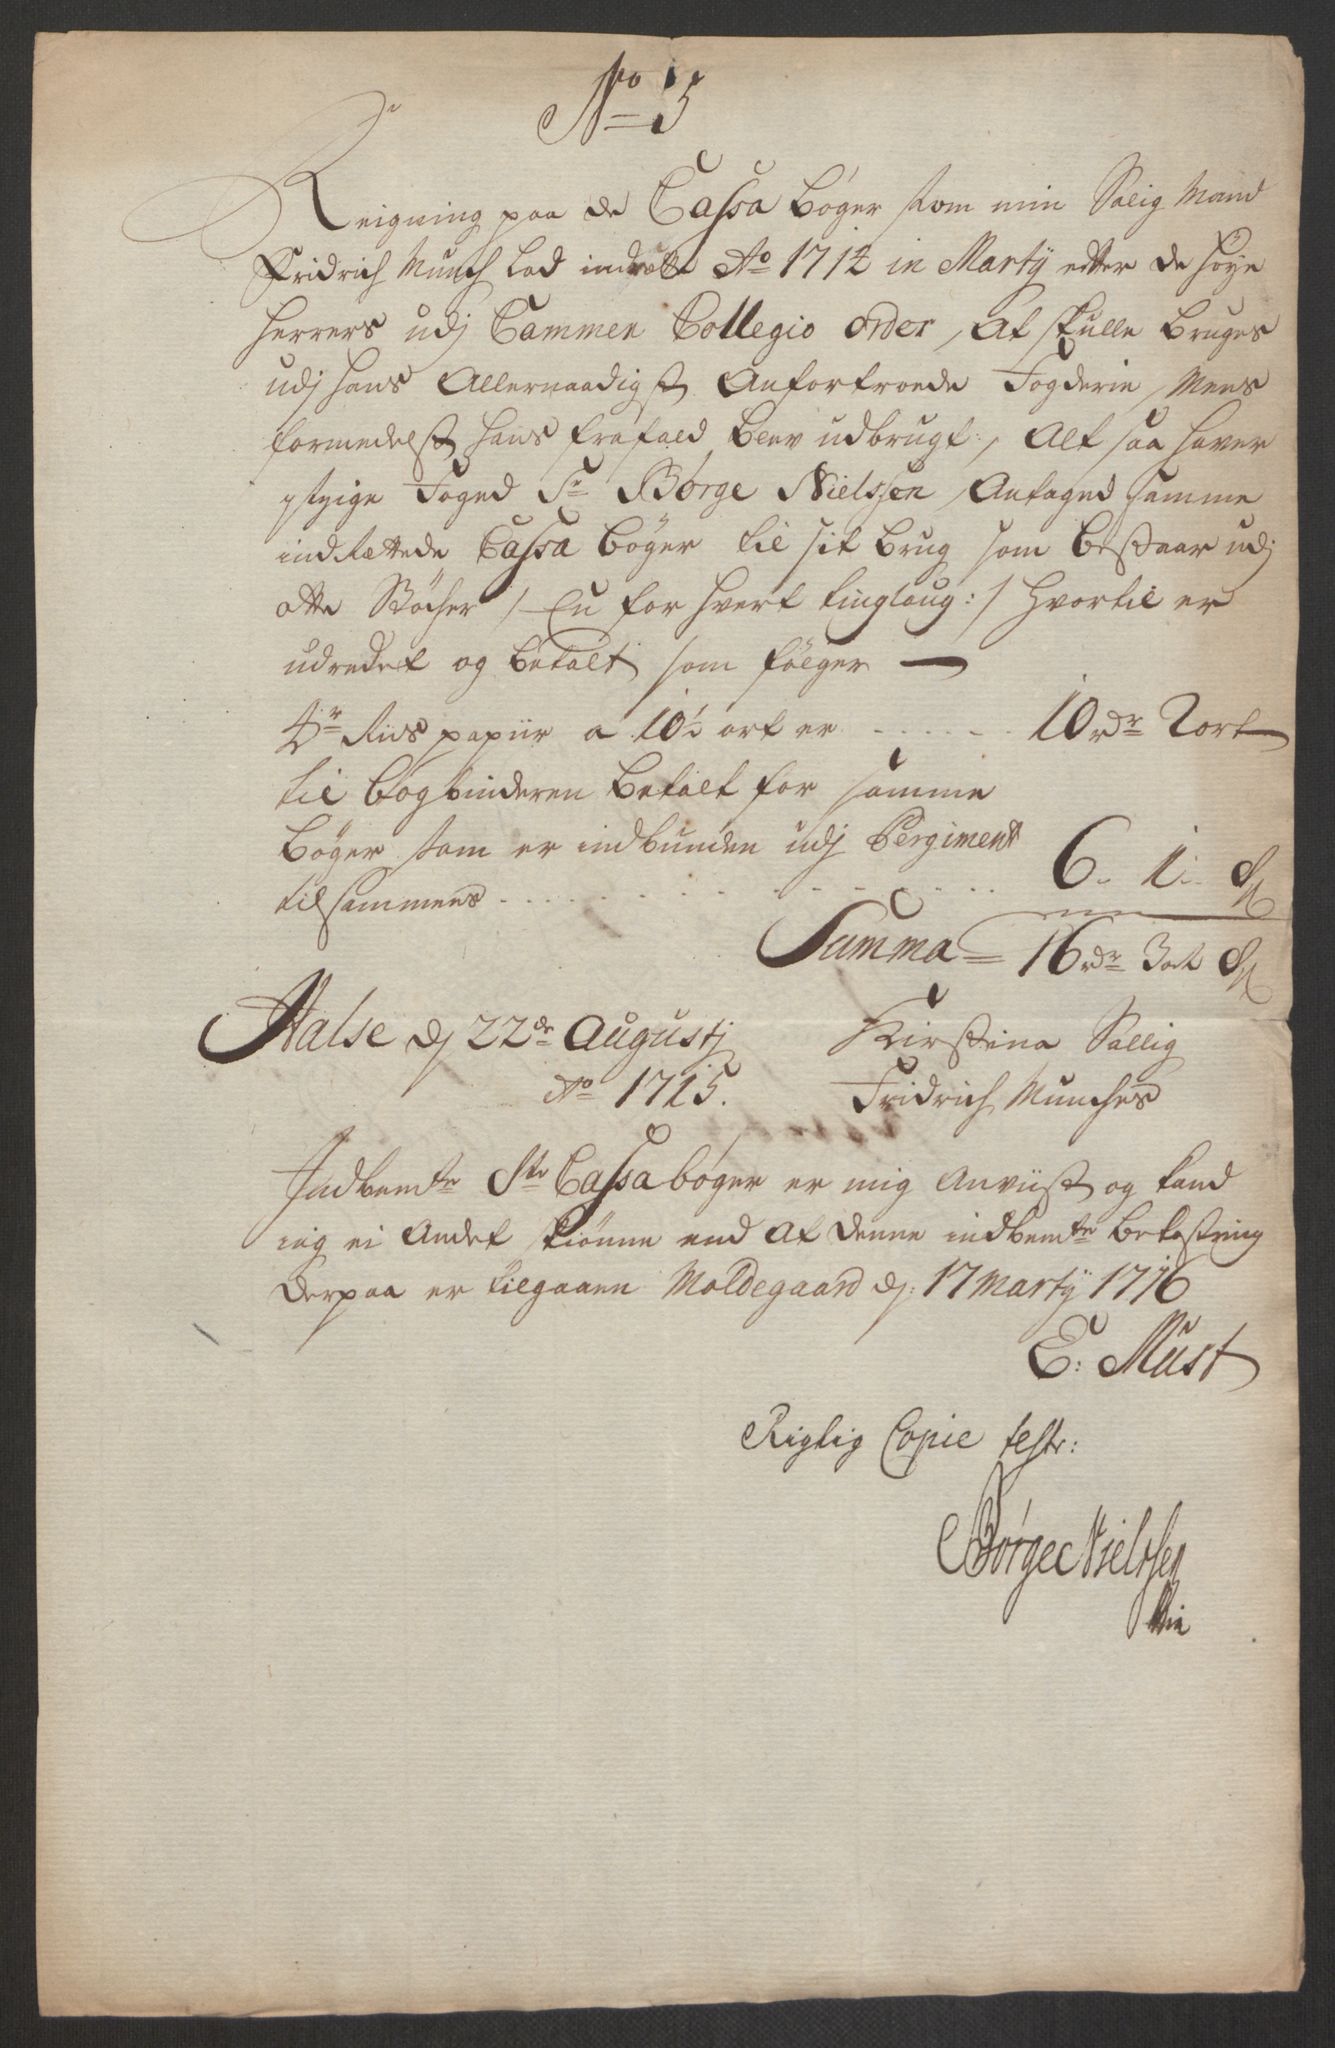 No 5
Reigning paa de Cassa bøger som min Salig Mand
Fridrich Munch lod indrette Ao 1712 in Marty effter de høye
herrers udj Cammer Collegio order, At skulle bruges
udj hans Allernaadigst Anfortroede Fogderie, Mens
formedelst hans frafald blev udbrugt, Alt saa haver
Foged Sr Børge Nielssen, Antaged samme
indrettede Cassa bøger til sit brug som bestaar udj
otte Støcher /: En for hvert tinglaug :/ hvortil er
udredet og betalt som følger —
4r Riis papiir a 10½ ort er . . . . . . 10 rdr 2 ort
til bogbinderen betalt for samme
bøger som er indbunden udj Pergiment
tilsammens . . . . . . . . . . . . . 6 - 1 - s
Summa = 16 rdr 3 ort s
Halse dj 22de Augustj Kirstina Sallig
Ao 1715. Fridrich Munches
Indbemte Ste Cassa bøger er mig Anviist og kand
ieg ei Andet skiønne end At denne indbemte bekostning
derpaa er tilgaaen Moldegaard dj: 17 Marty 1716
E: Must
Rigtig Copie test:
Børge Nielssen